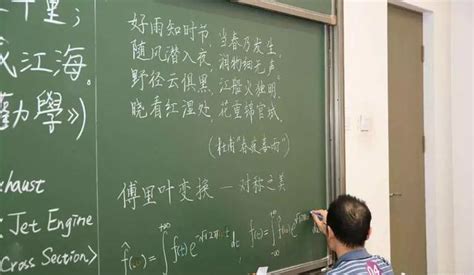 千里；
成江海。
勸學》)
好雨知时节，当春乃发生。
随风潜入夜，润物细无声。
野径云俱黑，江船火独明。
晓看红湿处，花重锦官城。
(杜甫"春夜喜雨")
傅里叶变换 — 对称之美
xhaust
Jet Engine
Cross Section>